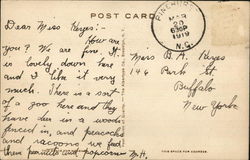 POST CARD
PINEHURST
MAR
20
630P
1919
N.C.
Dear Miss Keyes:-
How are
you? We are fine. It
is lovely down here
and I like it very
much. There is a sort
of a zoo here and they
have deer in a woods
fenced in, and peacocks
and racoons we feed
them peanuts and popcorn
M.H.
Miss B. A. Keyes
146 Park St.
Buffalo
New York
THIS SPACE FOR ADDRESS.